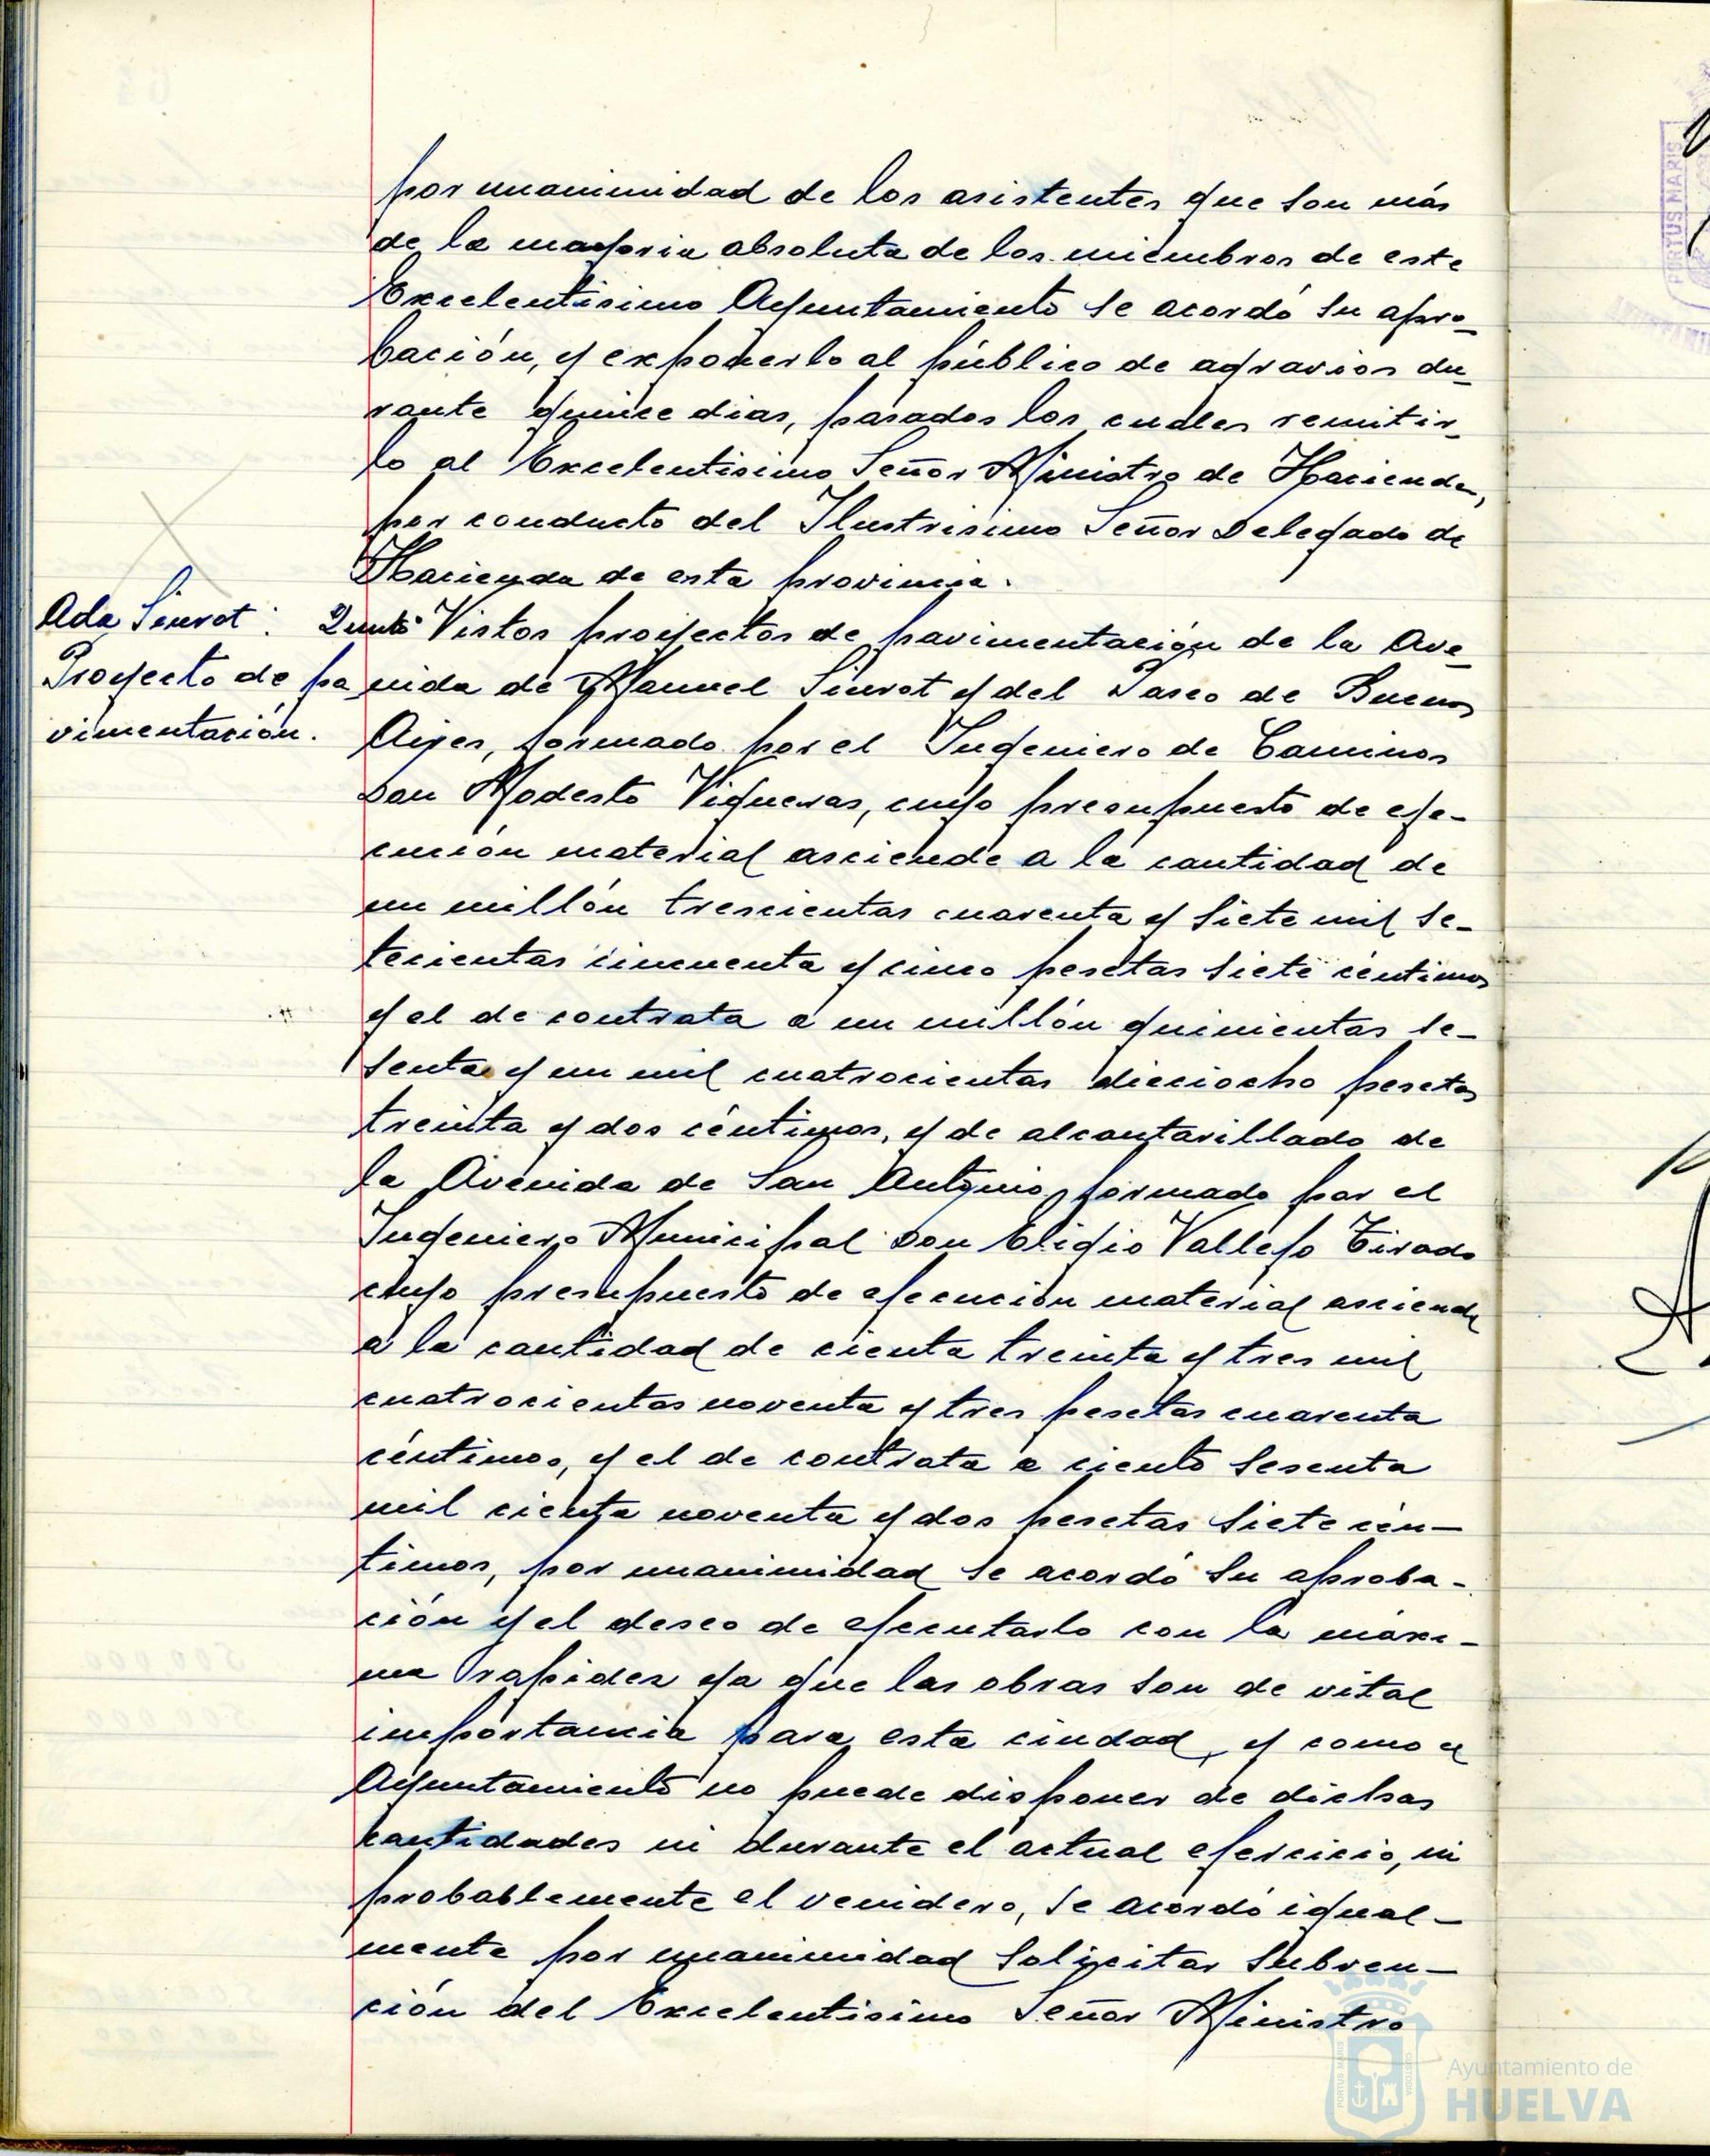 por unanimidad de los asistentes que son más
de la mayoria absoluta de los miembros de este
Excelentisimo Ayuntamiento se acordó su apro-
bación, y exponerlo al público de agravios du-
rante quince dias, pasados los cuales remitir-
lo al Excelentisimo Señor Ministro de Hacienda,
por conducto del Ilustrisimo Señor Delegado de
Hacienda de esta provincia.
Ada Siurot:
Proyecto de pa
vimentación.
Quinto Vistos proyectos de pavimentación de la Ave-
nida de Manuel Siurot y del Paseo de Buenos
Aires, formado por el Ingeniero de Caminos
Don Modesto Vigueras, cuyo presupuesto de eje-
cución material asciende a la cantidad de
un millón trescientas cuarenta y siete mil se-
tecientas cincuenta y cinco pesetas siete céntimos
y el de contrata a un millón quinientas se-
senta y un mil cuatrocientas dieciocho pesetas
treinta y dos céntimos, y de alcantarillado de
la Avenida de San Antonio, formado por el
Ingeniero Municipal Don Eligio Vallejo Tirado
cuyo presupuesto de ejecución material asciende
a la cantidad de cienta treinta y tres mil
cuatrocientas noventa y tres pesetas cuarenta
céntimos, y el de contrata a ciento sesenta
mil cienta noventa y dos pesetas siete cén-
timos, por unanimidad se acordó su aproba-
ción y el deseo de ejecutarlo con la máxi-
ma rapidez ya que las obras son de vital
importancia para esta ciudad, y como el
Ayuntamiento no puede disponer de dichas
cantidades ni durante el actual ejercicio, ni
probablemente el venidero, se acordó igual-
mente por unanimidad solicitar subven-
ción del Excelentisimo Señor Ministro
PORTUS MARIS
Ayuntamiento de
HUELVA